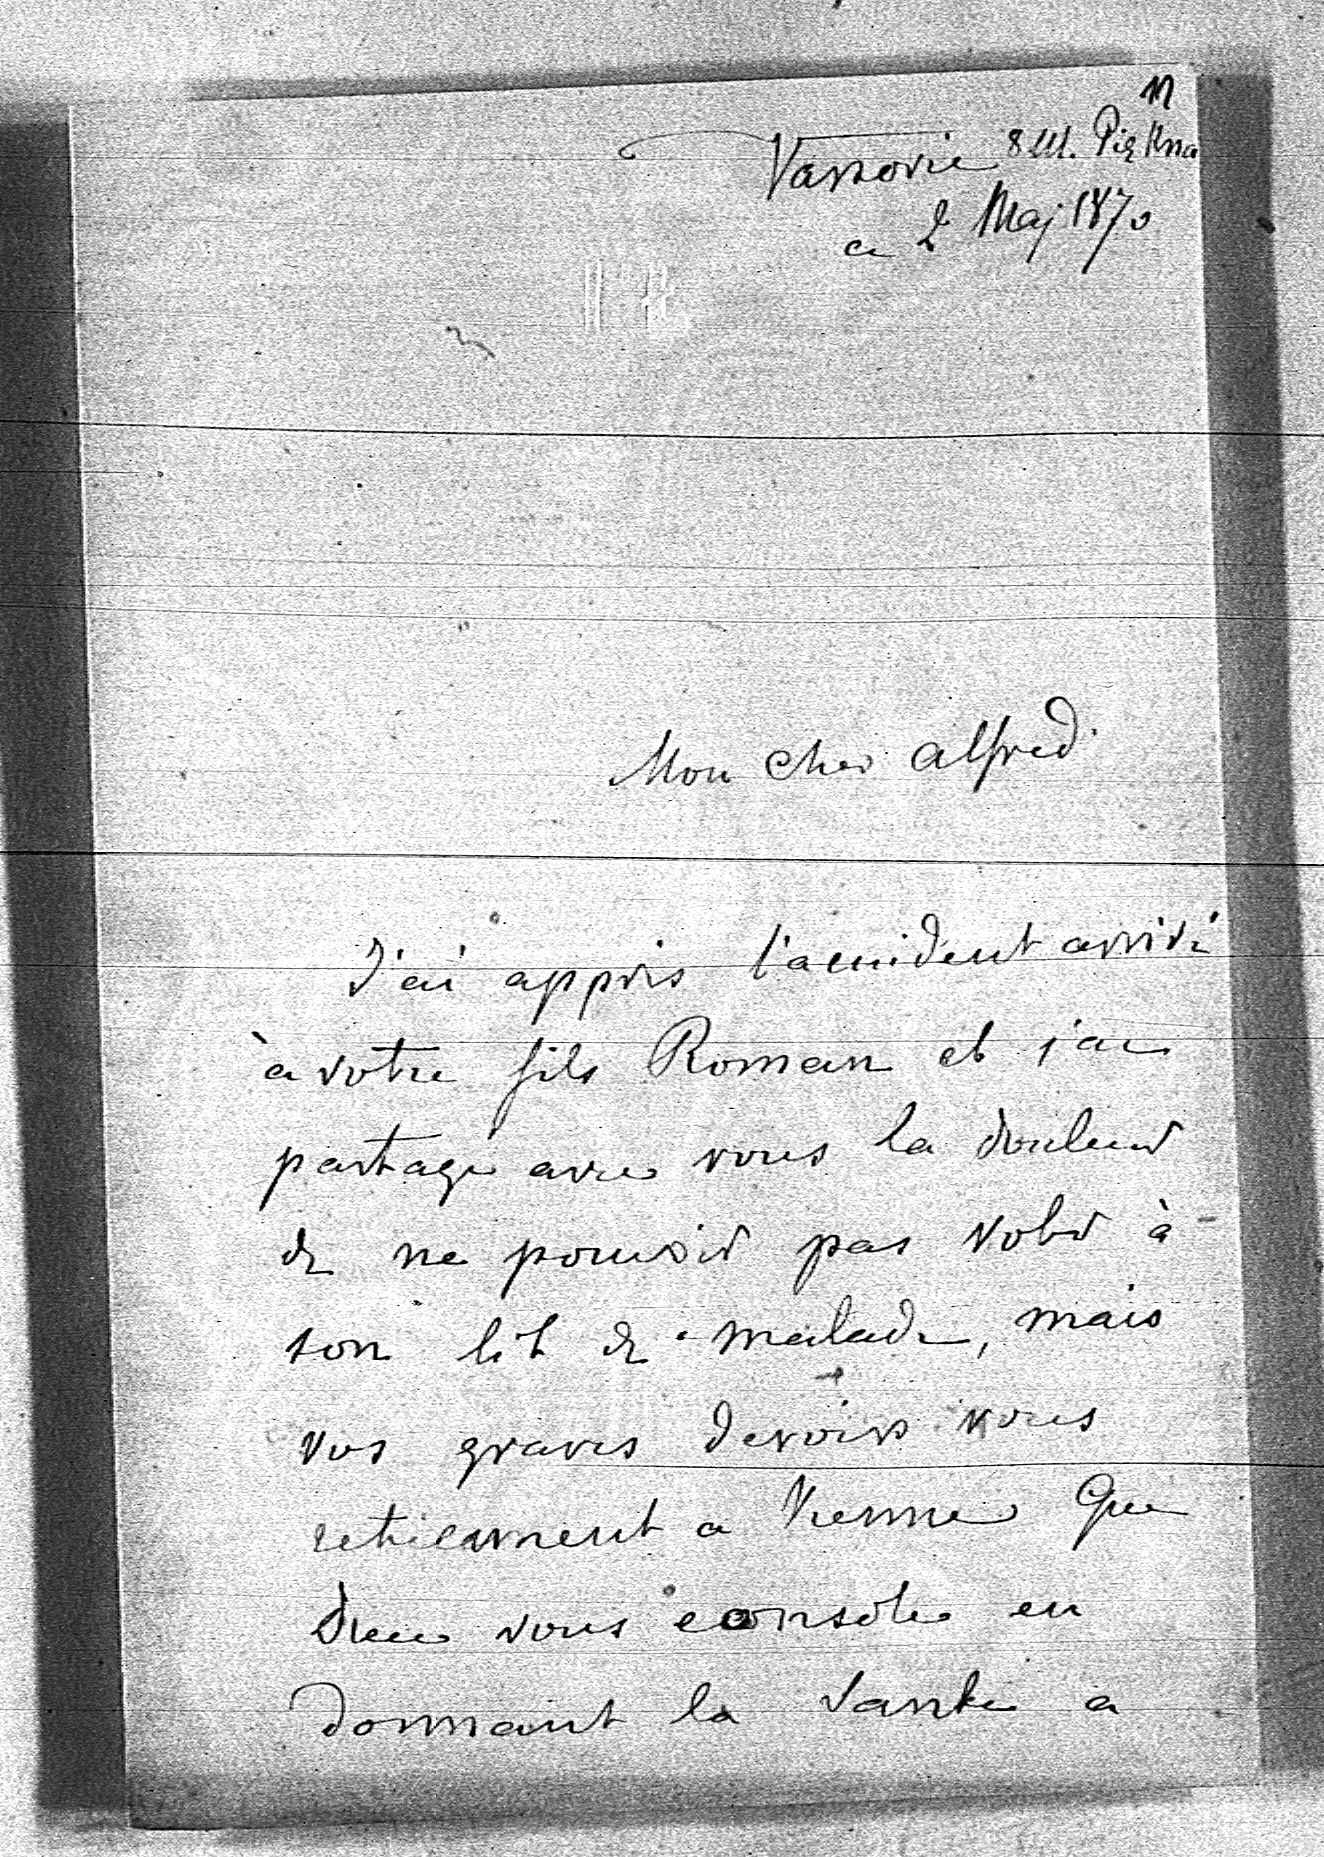 Varsovie 8 Ul. Piękna
ce 2 Maj 1870
Mon cher Alfred
J'ai appris l'accident arrivé
à votre fils Roman et j'ai
partagé avec vous la douleur
de ne pouvoir pas voler à
son lit de malade, mais
vos graves devoirs vous
retiennent a Vienne Que
Dieu vous console en
donnant la santé a